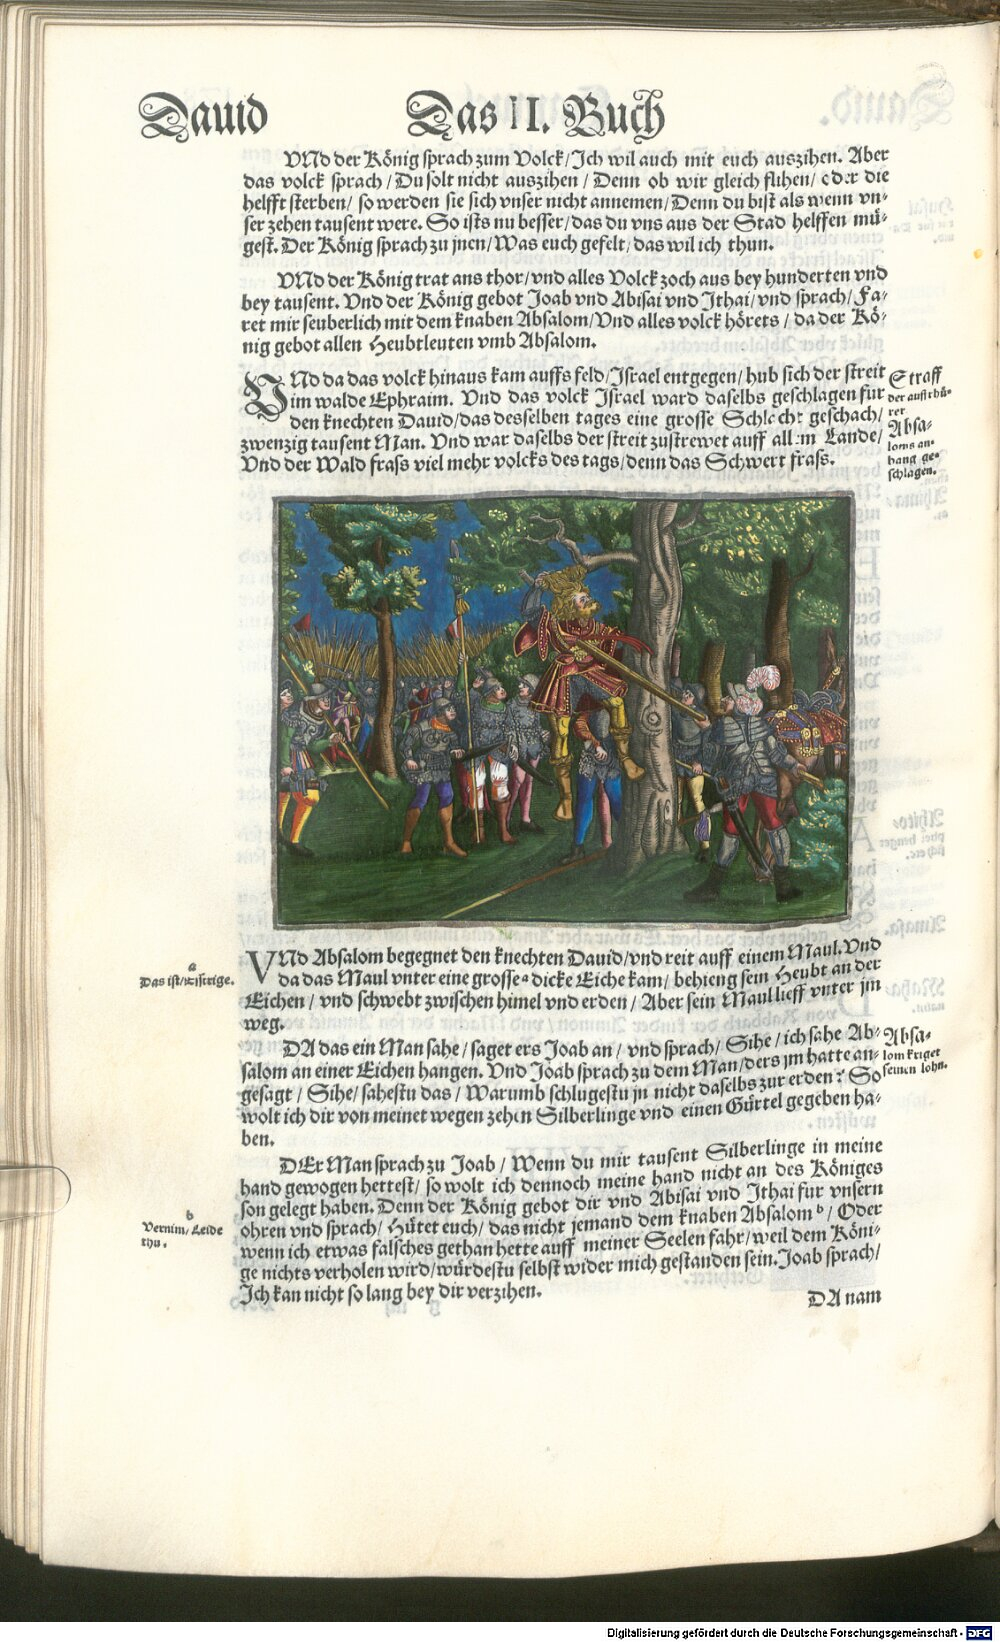 Dauid Das II. Buch
VNd der König sprach zum Volck/Ich wil auch mit euch auszihen. Aber
das volck sprach/Du solt nicht auszihen/Denn ob wir gleich flihen/oder die
helfft sterben/so werden sie sich vnser nicht annemen/Denn du bist als wenn vn-
ser zehen tausent were. So ists nu besser/das du vns aus der Stad helffen mü-
gest. Der König sprach zu jnen/Was euch gefelt/das wil ich thun.
VNd der König trat ans thor/vnd alles Volck zoch aus bey hunderten vnd
bey tausent. Vnd der König gebot Joab vnd Abisai vnd Ithai/vnd sprach/Fa-
ret mir seuberlich mit dem knaben Absalom/Vnd alles volck hörets/da der Kö-
nig gebot allen Heubtleuten vmb Absalom.
VNd da das volck hinaus kam auffs feld/Israel entgegen/hub sich der streit
im walde Ephraim. Vnd das volck Israel ward daselbs geschlagen fur
den knechten Dauid/das desselben tages eine grosse Schlacht geschach/
zwenzig tausent Man. Vnd war daselbs der streit zustrewet auff allem Lande/
Vnd der Wald frass viel mehr volcks des tags/denn das Schwert frass.
Straff
der auffrhü-
rer
Absa-
loms an-
hang ge-
schlagen.
VNd Absalom begegnet den knechten Dauid/vnd reit auff einem Maul. Vnd
da das Maul vnter eine grosse a dicke Eiche kam/behieng sein Heubt an der
Eichen/vnd schwebt zwischen himel vnd erden/Aber sein Maul lieff vnter jm
weg.
a
Das ist/
DA das ein Man sahe/saget ers Joab an/vnd sprach/Sihe/ich sahe Ab-
salom an einer Eichen hangen. Vnd Joab sprach zu dem Man/ders jm hatte an-
gesagt/Sihe/sahestu das/Warumb schlugestu jn nicht daselbs zur erden? So
wolt ich dir von meinet wegen zehen Silberlinge vnd einen Gürtel gegeben ha-
ben.
Absa-
lom krieget
seinen lohn.
DEr Man sprach zu Joab/Wenn du mir tausent Silberlinge in meine
hand gewogen hettest/so wolt ich dennoch meine hand nicht an des Königes
son gelegt haben. Denn der König gebot dir vnd Abisai vnd Ithai fur vnsern
ohren vnd sprach/Hütet euch/das nicht jemand dem knaben Absalom b/Oder
wenn ich etwas falsches gethan hette auff meiner Seelen fahr/weil dem Köni-
ge nichts verholen wird/würdestu selbst wider mich gestanden sein. Joab sprach/
Ich kan nicht so lang bey dir verzihen.
b
Vernim/Leide
thu.
DA nam
Digitalisierung gefördert durch die Deutsche Forschungsgemeinschaft - DFG